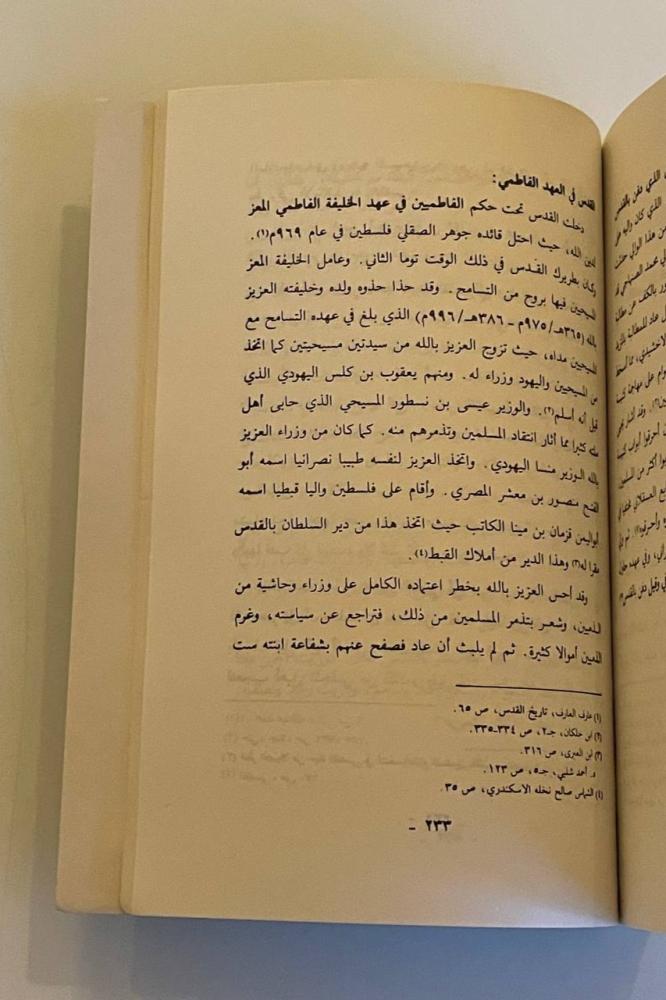 القدس في العهد الفاطمي:
دخلت القدس تحت حكم الفاطميين في عهد الخليفة الفاطمي المعز
لدين الله، حيث احتل قائده جوهر الصقلي فلسطين في عام ٩٦٩م(١).
وكان بطريرك القدس في ذلك الوقت توما الثاني. وعامل الخليفة المعز
المسيحيين فيها بروح من التسامح. وقد حذا حذوه ولده وخليفته العزيز
بالله (٣٦٥هـ/٩٧٥م - ٣٨٦هـ/٩٩٦م) الذي بلغ في عهده التسامح مع
المسيحيين مداه، حيث تزوج العزيز بالله من سيدتين مسيحيتين كما اتخذ
من المسيحيين واليهود وزراء له. ومنهم يعقوب بن كلس اليهودي الذي
قيل أنه أسلم(٢). والوزير عيسى بن نسطور المسيحي الذي حابى أهل
ملته كثيرا مما أثار انتقاد المسلمين وتذمرهم منه. كما كان من وزراء العزيز
بالله الوزير منسا اليهودي. واتخذ العزيز لنفسه طبيبا نصرانيا اسمه أبو
الفتح منصور بن معشر المصري. وأقام على فلسطين واليا قبطيا اسمه
أبواليمن قزمان بن مينا الكاتب حيث اتخذ هذا من دير السلطان بالقدس
مقرا له(٣) وهذا الدير من أملاك القبط(٤).
وقد أحس العزيز بالله بخطر اعتماده الكامل على وزراء وحاشية من
الذميين، وشعر بتذمر المسلمين من ذلك، فتراجع عن سياسته، وغرم
الذميين أموالا كثيرة. ثم لم يلبث أن عاد فصفح عنهم بشفاعة ابنته ست
(١) عارف العارف، تاريخ القدس، ص ٦٥.
(٢) ابن خلكان، جـ٢، ص ٣٣٤-٣٣٥.
(٣) ابن العبرى، ص ٣١٦.
د. أحمد شلبي، جـ٥، ص ١٢٣.
(٤) الشماس صالح نخله الاسكندري، ص ٣٥.
٢٣٣ -